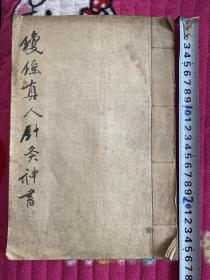 瓊瑤真人針灸神書
1 2 3 4 5 6 7 8 9 10 1 2 3 4 5 6 7 8 9 20 1 2 3 4 5 6 7 8